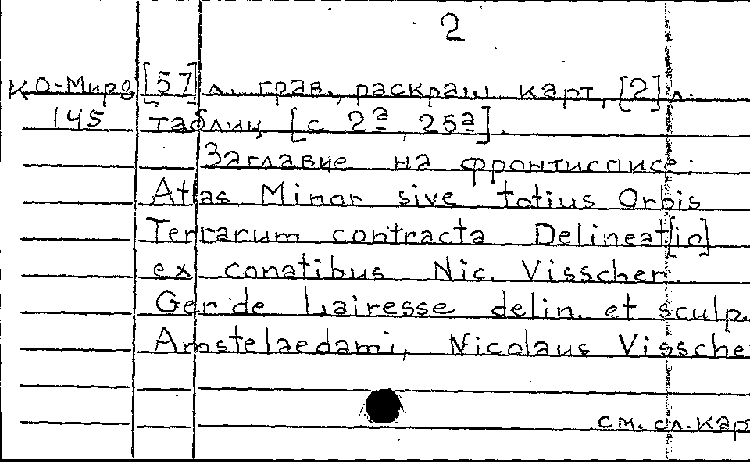 2
КО-Мира [57] л. грав., раскраш. карт, [2] л.
145 таблиц [с 2ª, 25ª].
Заглавие на фронтисписе:
Atlas Minor sive totius Orbis
Terrarum contracta Delineat[io]
ex conatibus Nic. Visscher.
Ger de Lairesse delin. et sculp.
Amstelaedami, Nicolaus Vissche
см. сл. кар